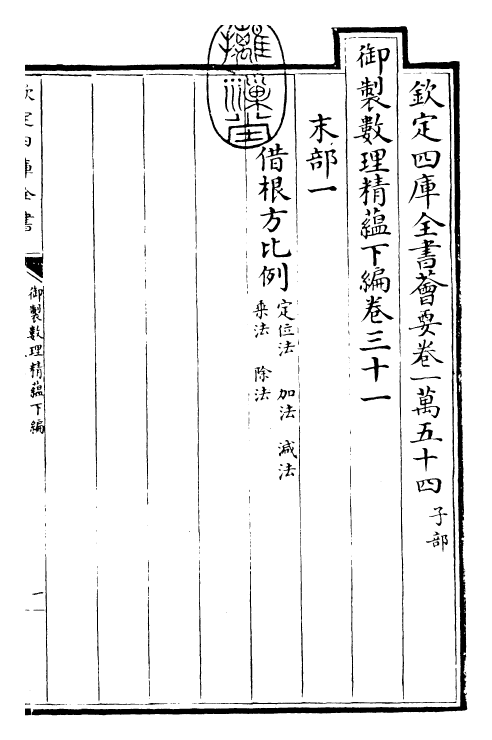 欽定四庫全書薈要卷一萬五十四 子部
御製數理精蘊下編卷三十一
末部一
借根方比例
定位法 加法 減法
乘法 除法
欽定四庫全書
御製數理精蘊下編
一